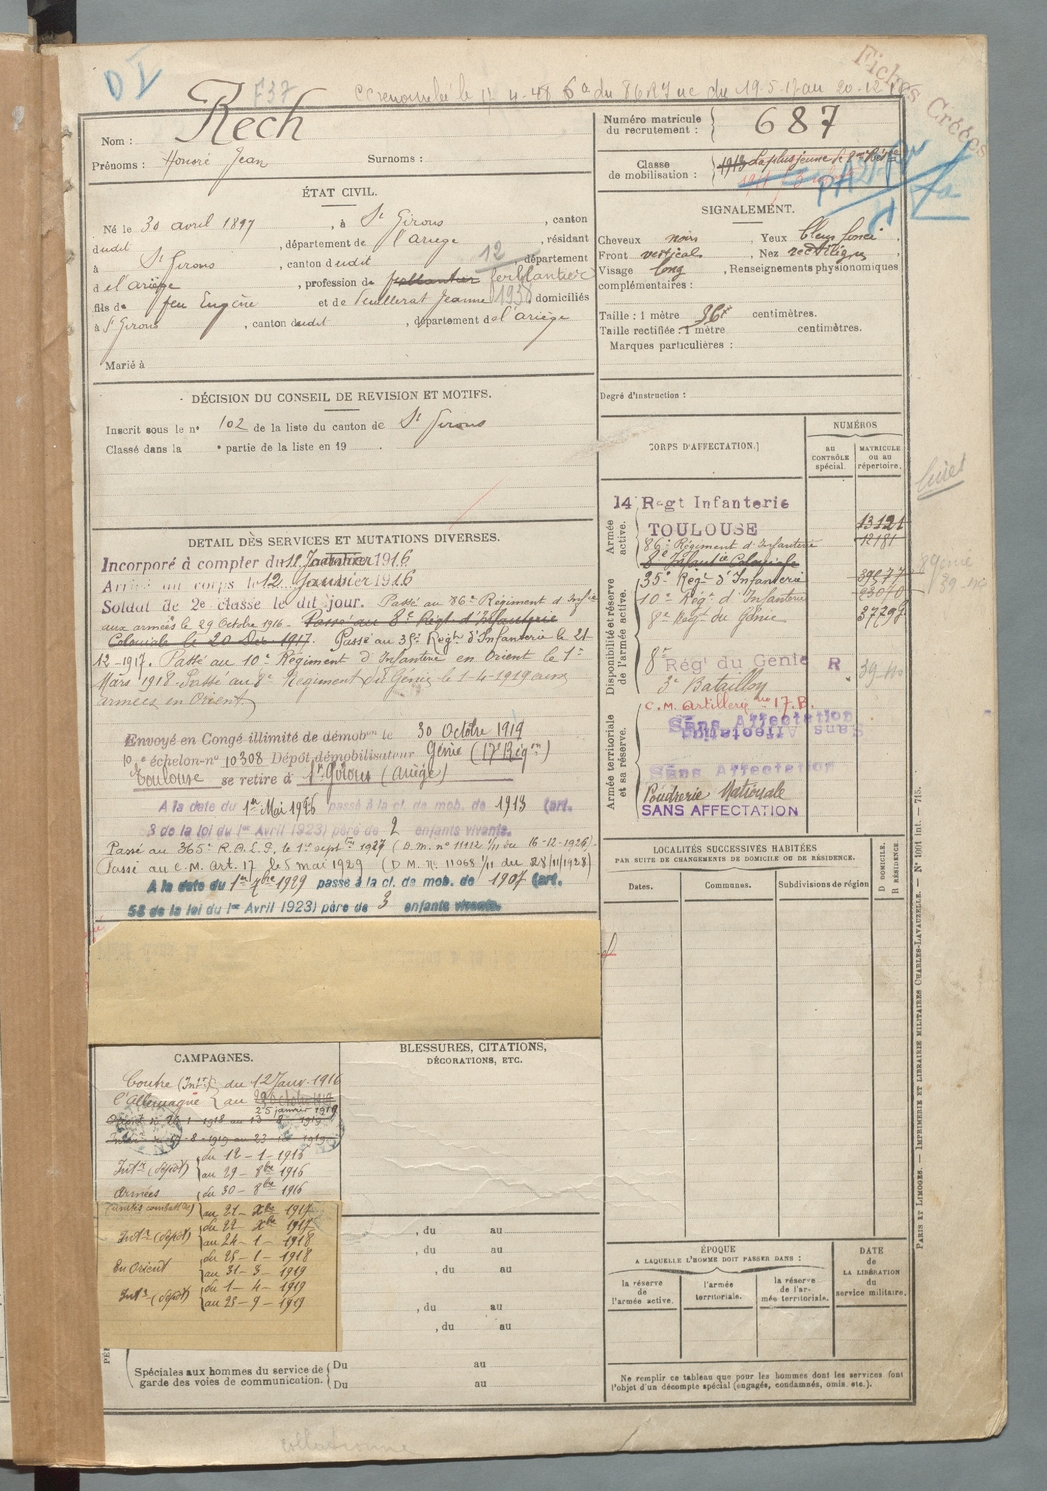 D I
F37
Fiches Créées
Nom : Rech
Prénoms : Honoré Jean Surnoms :
Numéro matricule du recrutement : 687
Classe de mobilisation : 1913 La plus jeune de 2me Rés
ÉTAT CIVIL.
Né le 30 avril 1897, à St Girons, canton
dudit, département de l'ariège, résidant
à St Girons, canton dudit 12, département
d el'ariège, profession de ferblantier
fils de feu Eugène et de Jeanne 1938, domiciliés
à St Girons, canton dudit, département de l'ariège
Marié à
SIGNALEMENT.
Cheveux noirs, Yeux bleus foncé,
Front vertical, Nez rectiligne,
Visage long, Renseignements physionomiques
complémentaires :
Taille : 1 mètre 36 centimètres.
Taille rectifiée : 1 mètre centimètres.
Marques particulières :
Degré d'instruction :
DÉCISION DU CONSEIL DE REVISION ET MOTIFS.
Inscrit sous le n° 102 de la liste du canton de St Girons
Classé dans la • partie de la liste en 19 .
DETAIL DES SERVICES ET MUTATIONS DIVERSES.
Incorporé à compter du 11 Janvier 1916
Arrivé au corps le 12 Janvier 1916
Soldat de 2e classe le dit jour. Passé au 86e Régiment d'Infie
aux armées le 29 Octobre 1916. Passé au 8e Régt d'Infanterie
Coloniale le 20 Dec 1917. Passé au 35e Regt d'Infanterie le 21-
12-1917. Passé au 10e Régiment d'Infanterie en Orient le 1er
Mars 1918. Passé au 8e Régiment du Génie le 1-4-1919 aux
armées en Orient
Envoyé en Congé illimité de démob.on le 30 Octobre 1919
10e échelon-n° 10308 Dépôt démobilisateur Génie (17e Rég on)
Toulouse se retire à St Girons (Ariège)
A la date du 1er Mai 1926 passé à la cl. de mob. de 1913 (art.
58 de la loi du 1er Avril 1923) père de 2 enfants vivants.
Passé au 365e R.A.L.P. le 1er septbre 1927 (D.M. n° 11112 1/11 du 16-12-1926).
Passé au C.M. Art. 17 le 5 mai 1929 (D.M. N° 11068 1/11 du 28/11/1928)
A la date du 1er 9bre 1929 passé à la cl. de mob. de 1907 (art.
58 de la loi du 1er Avril 1923) père de 3 enfants vivants.
CORPS D'AFFECTATION.
NUMÉROS
AU CONTRÔLE spécial.
MATRICULE OU AU répertoire.
Armée active.
14 Regt Infanterie
TOULOUSE 13121
86e Régiment d'Infanterie 12181
8e Infanterie Coloniale
Disponibilité et réserve de l'armée active.
35e Régt d'Infanterie
10e Régt d'Infanterie
8e Regt du Génie
8e Rég' du Génie R
3e Bataillon
Armée territoriale et sa réserve.
C.M. Artillerie no 17. B.
Sans Affectation
Sans Affectation
Sans Affectation
Poudrerie Nationale
SANS AFFECTATION
LOCALITÉS SUCCESSIVES HABITÉES
PAR SUITE DE CHANGEMENTS DE DOMICILE OU DE RÉSIDENCE.
Dates.
Communes.
Subdivisions de région
D DOMICILE.
R RÉSIDENCE.
CAMPAGNES.
Contre (Intr) du 12 Janv. 1916
l'Allemagne au
25 janvier 1919
Intr (dépôt) du 12-1-1916
au 29-8bre 1916
Armées du 30-8bre 1916
(unités combattes) au 21-Xbre 1917
Intr (dépôt) du 22-Xbre 1917
au 24-1-1918
En Orient du 25-1-1918
au 31-3-1919
Intr (dépôt) du 1-4-1919
au 23-9-1919
BLESSURES, CITATIONS,
DÉCORATIONS, ETC.
, du au
, du au
, du au
, du au
, du au
Spéciales aux hommes du service de garde des voies de communication.
Du au
Du au
ÉPOQUE
A LAQUELLE L'HOMME DOIT PASSER DANS :
la réserve de l'armée active.
l'armée territoriale.
la réserve de l'armée territoriale.
DATE DE LA LIBÉRATION du service militaire.
Ne remplir ce tableau que pour les hommes dont les services font
l'objet d'un décompte spécial (engagés, condamnés, omis. etc.).
PARIS ET LIMOGES. — IMPRIMERIE ET LIBRAIRIE MILITAIRES CHARLES-LAVAUZELLE. — N° 1001 Int. — 715.
collationné